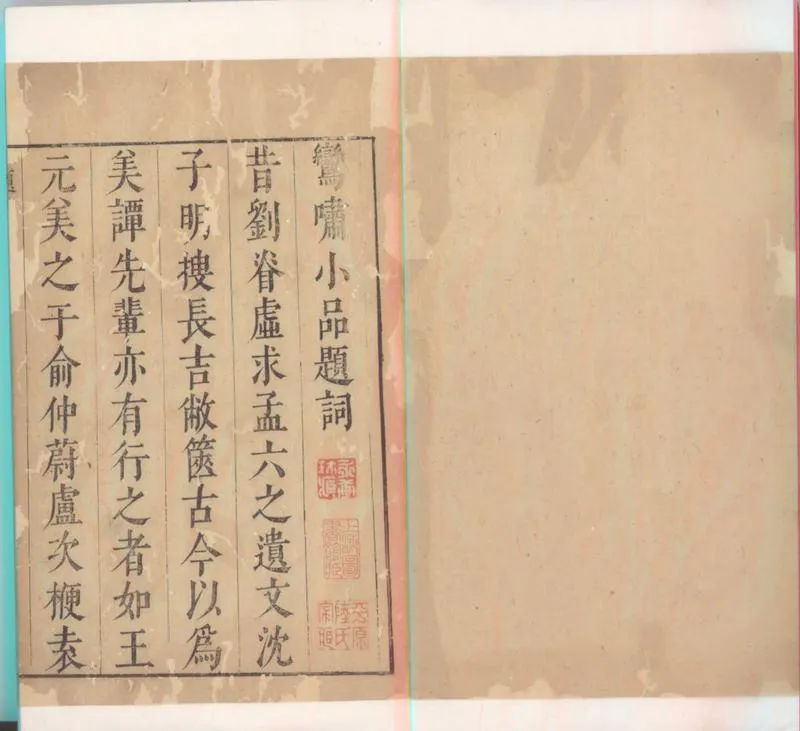 鸞嘯小品題詞
昔劉眘虛求孟六之遺文沈
子明搜長吉敝篋古今以爲
美譚先輩亦有行之者如王
元美之于俞仲蔚盧次楩袁
平原陸氏